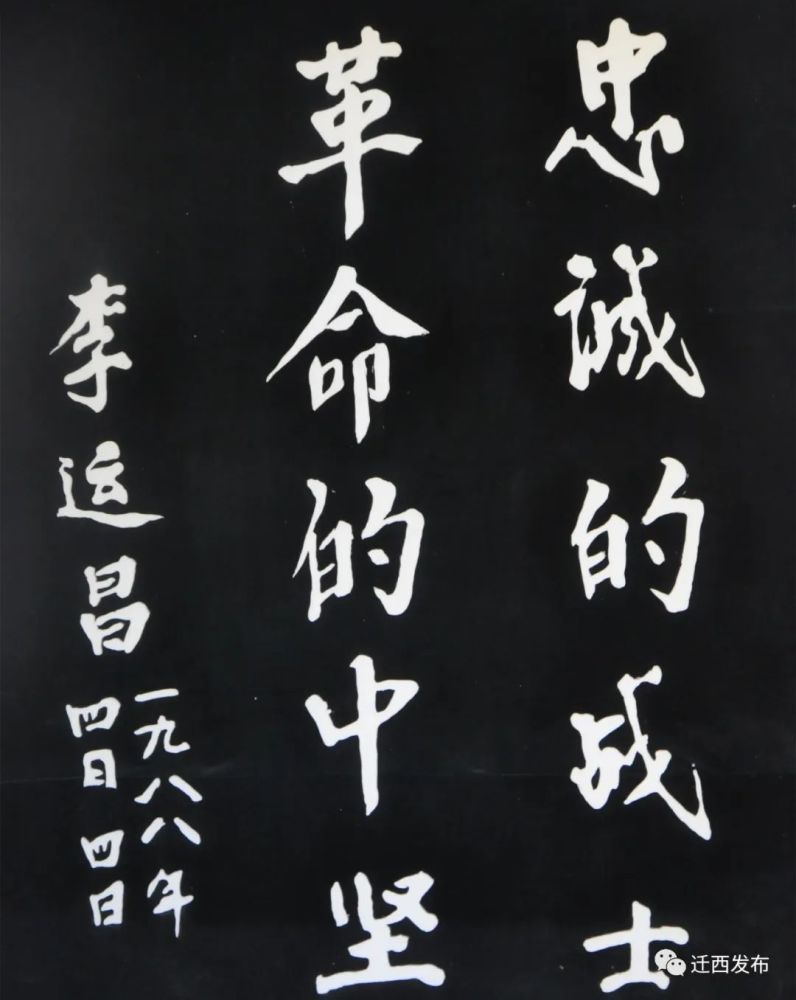 忠誠的战士
革命的中坚
李运昌
一九八八年
四月四日
迁西发布